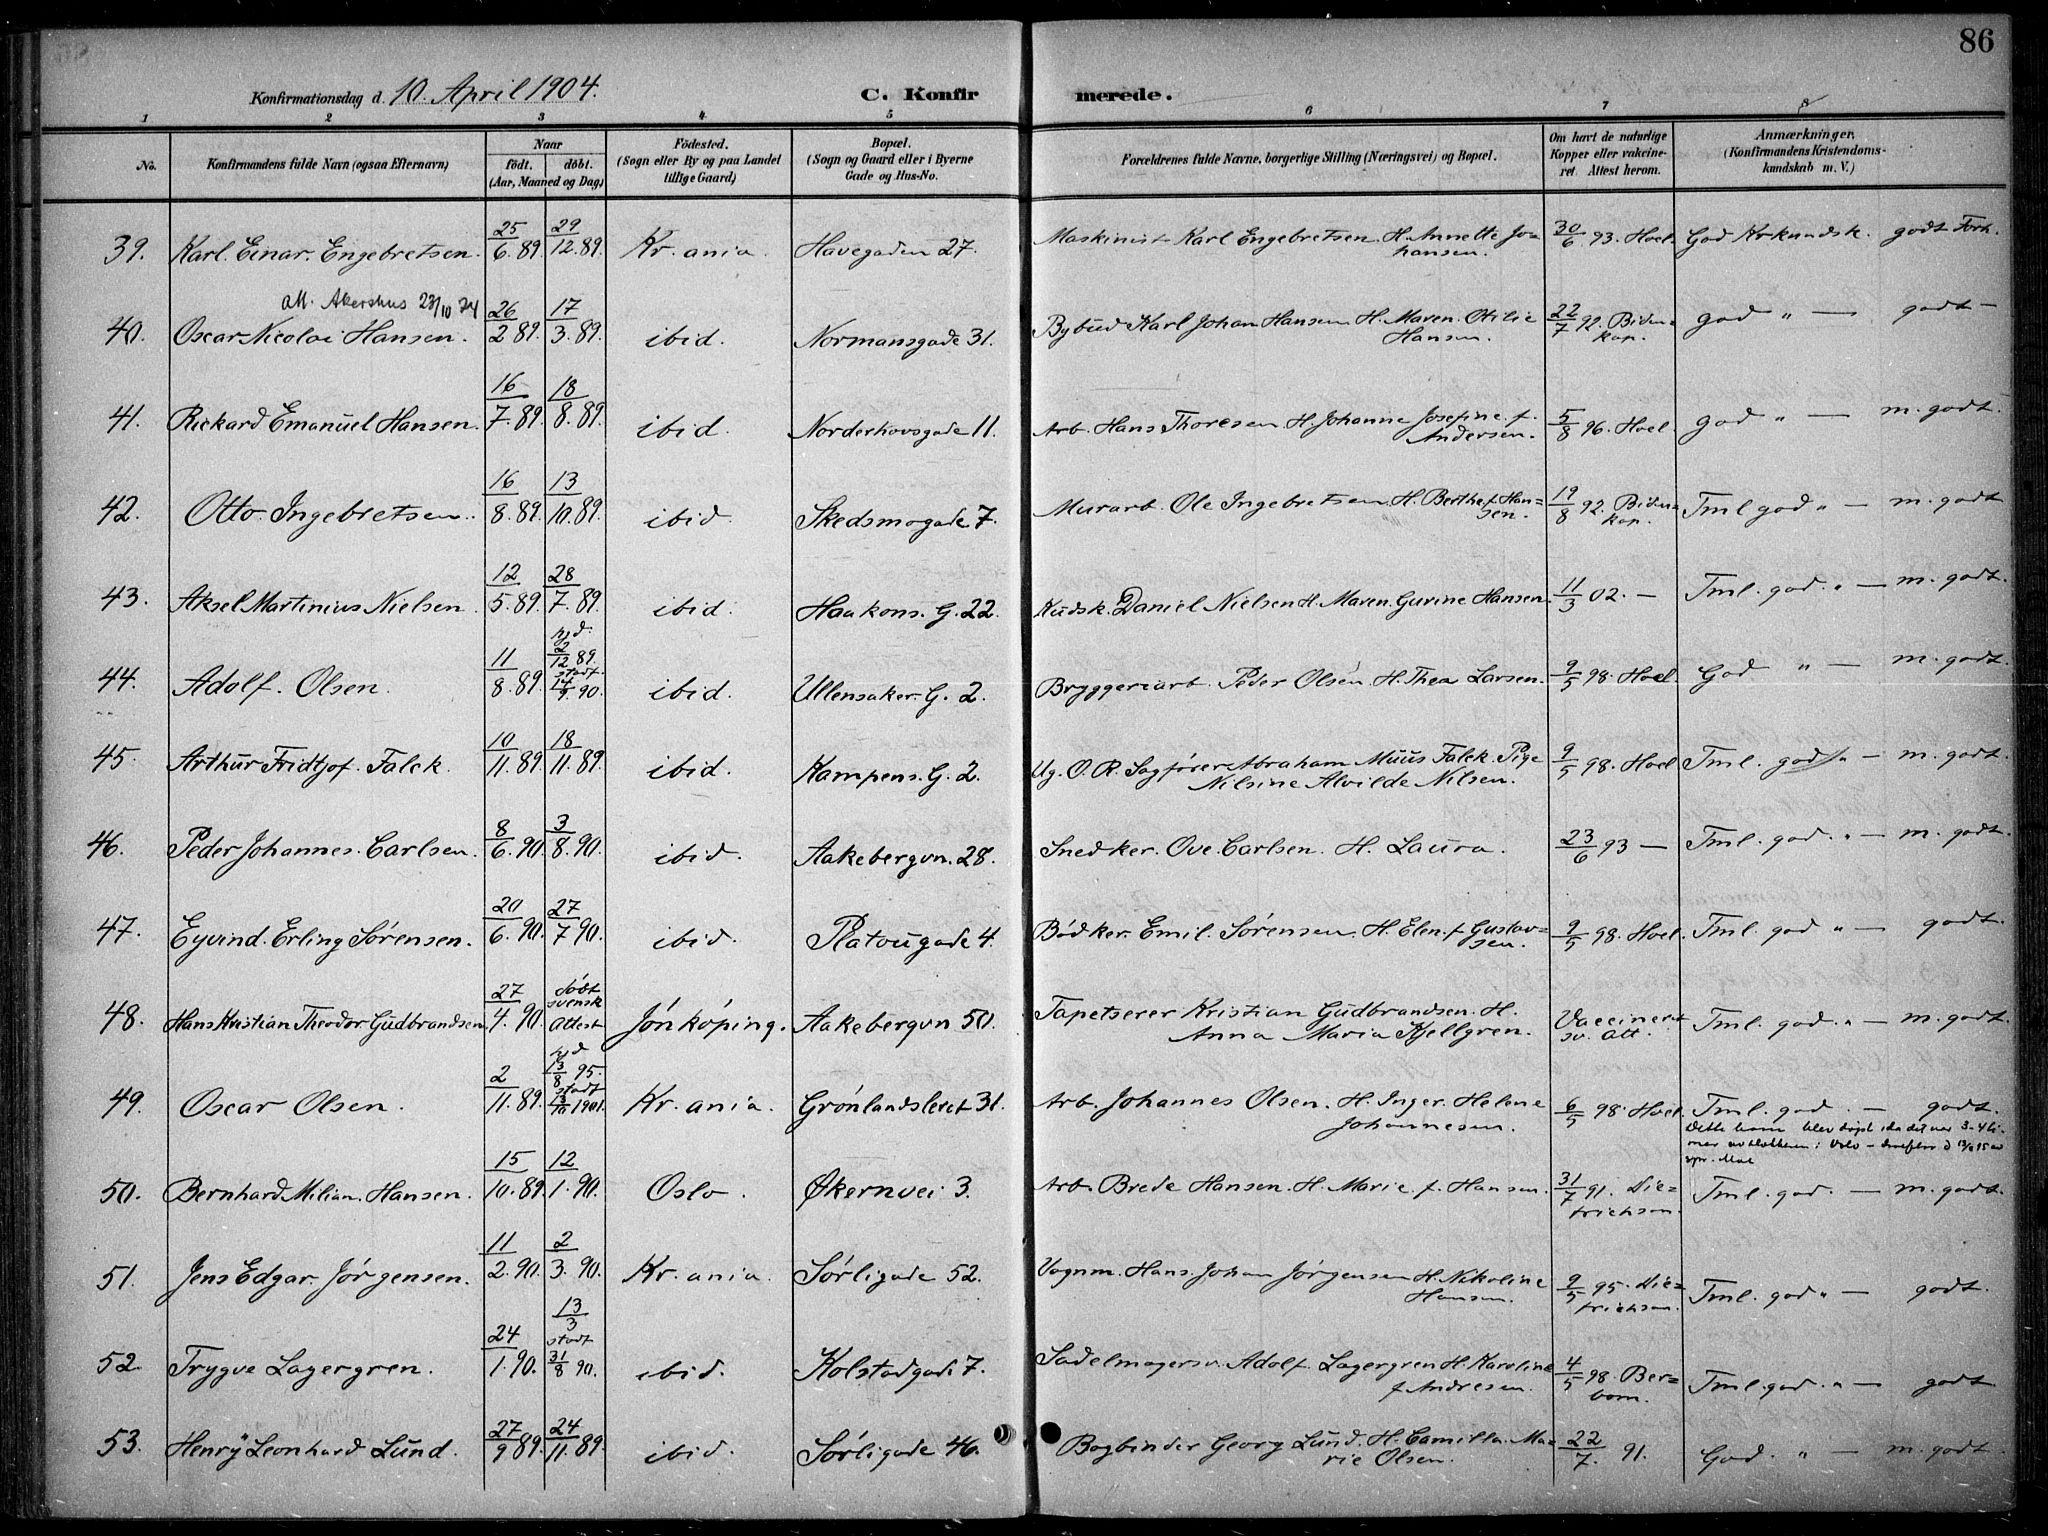 86
Konfirmationsdag d. 10. April 1904. C. Konfir merede.
1 2 3 4 5 6 7 8
No. Konfirmandens fulde Navn (ogsaa Efternavn) Naar födt. döbt. (Aar, Maaned og Dag) Födested. (Sogn eller By og paa Landet tillige Gaard) Bopæl. (Sogn og Gaard eller i Byerne Gade og Hus-No. Forældrenes fulde Navne, borgerlige Stilling (Næringsvei) og Bopæl. Om havt de naturlige Kopper eller vakcineret. Attest herom. Anmærkninger. (Konfirmandens Kristendomskundskab m. V.)
39. Karl. Einar. Engebretsen. 25/6 89. 29/12 89. Kr.ania. Havegaden 27. Maskinist Karl Engebretsen. H. Annette Johansen. 30/6 93. Hoel. God Kr.kundsk. godt Forh.
att. Akershus 23/10 74
40. Oscar Nicolai Hansen. 26/2 89. 17/3 89. ibid. Normansgade 31. Bybud Karl Johan Hansen H. Maren Otilie Hansen. 22/7 92. Bidenkap. god " — godt —
41. Rickard Emanuel Hansen. 16/7 89. 18/8 89. ibid. Norderhovsgade 11. Arb. Hans Thoresen H. Johanne Josefine f. Andersen. 5/8 96. Hoel. god " — m. godt.
42. Otto. Ingebretsen. 16/8 89. 13/10 89. ibid. Skedsmogade 7. Murarb. Ole Ingebretsen. H. Berthe f. Hansen. 19/8 92. Bidenkap. Tml god " — m. godt
43. Aksel Martinius Nielsen. 12/5 89. 28/7 89. ibid. Haakons. G. 22. Kudsk. Daniel Nielsen H. Maren Gurine Hansen. 11/3 02. — Tml. god. " — m. godt.
44. Adolf. Olsen. 11/8 89. hjd. 2/12 89. stadf. 14/9 90. ibid. Ullensaker. G. 2. Bryggeriarb. Peder Olsen. H. Thea Larsen. 9/5 98. Hoel. God " — m. godt.
45. Arthur Fridtjof. Falck. 10/11 89. 18/11 89. ibid. Kampens. G. 2. Ug. O. R. Sagfører Abraham Muus Falck. Pige Nilsine Alvilde Nilsen. 9/5 98. Hoel Tml. god " — m. godt.
46. Peder Johannes. Carlsen. 8/6 90. 3/8 90. ibid. Aakebergvn. 28. Snedker. Ove. Carlsen. H. Laura. 23/6 93 — Tml. god. " — m. godt.
47. Eyvind. Erling Sørensen. 20/6 90. 27/7 90. ibid. Platougade 4. Bödker. Emil. Sørensen. H. Elen. f Gustavsen. 9/5 98. Hoel. Tml. god " — godt.
48. Hans Kristian Theodor Gudbrandsen 27/4 90. Født svensk Attest Jönköping. Aakebergvn 50. Tapetserer Kristian Gudbrandsen. H. Anna Maria Kjellgren. Vaccinert sv. Att. Tml. god. " — m. godt.
49. Oscar Olsen. 2/11 89. hjd 13/8 95. stadf 1901. Kr.ania. Grønlandsleret 31. Arb. Johannes Olsen. H. Inger. Helene Johannesen. 6/5 98. Hoel. Tml. god. — godt.
Dette barn blev døpt da det var 3-4
50. Bernhard Milian. Hansen. 15/10 89. 12/1 90. Oslo. Økernvei 3. Arb. Brede Hansen. H. Marie f. Hansen. 31/7 91. Dietrichson. Tml. god. — m. godt.
51. Jens Edgar. Jørgensen. 11/2 90. 2/3 90. Kr.ania. Sørligade 52. Vognm. Hans. Johan Jørgensen H. Nikoline Hansen. 9/5 95. Dietrichson. Tml. god " — godt.
52. Trygve Lagergren. 24/1 90. 13/3 stadt 31/8 90. ibid. Kolstadgade 7. Sadelmagersv. Adolf. Lagergren H. Karoline f Andresen. 4/5 98. Berbom. Tml. god. " — godt.
53. Henry Leonhard Lund. 27/9 89. 24/11 89. ibid. Sørligade 46. Bogbinder Georg Lund. H. Camilla. Marie Olsen. 22/7. 91. God. " — m. godt.